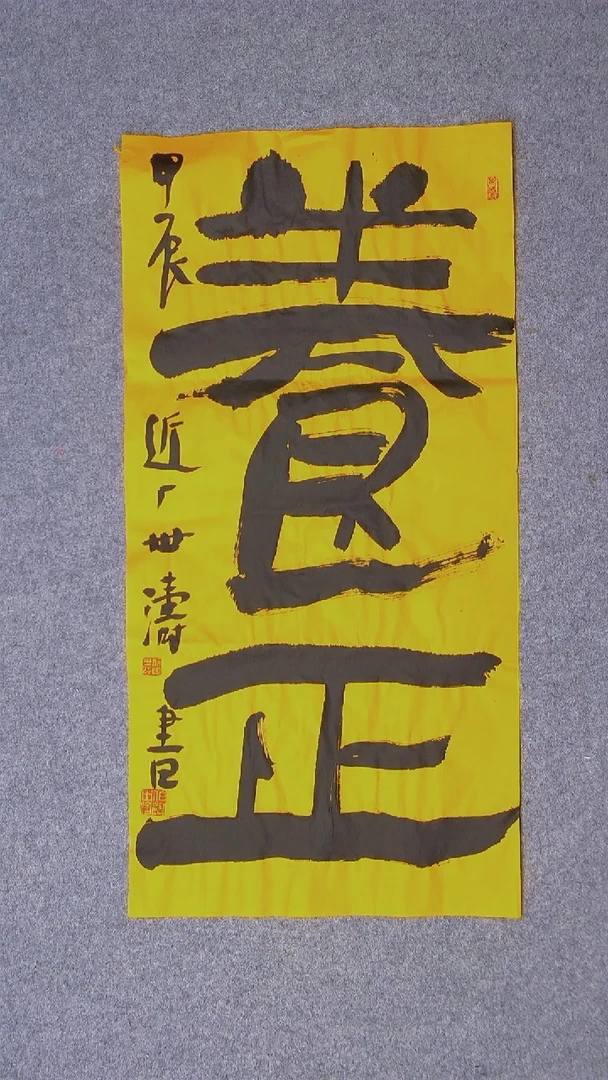 養正
甲辰
近
世濤書